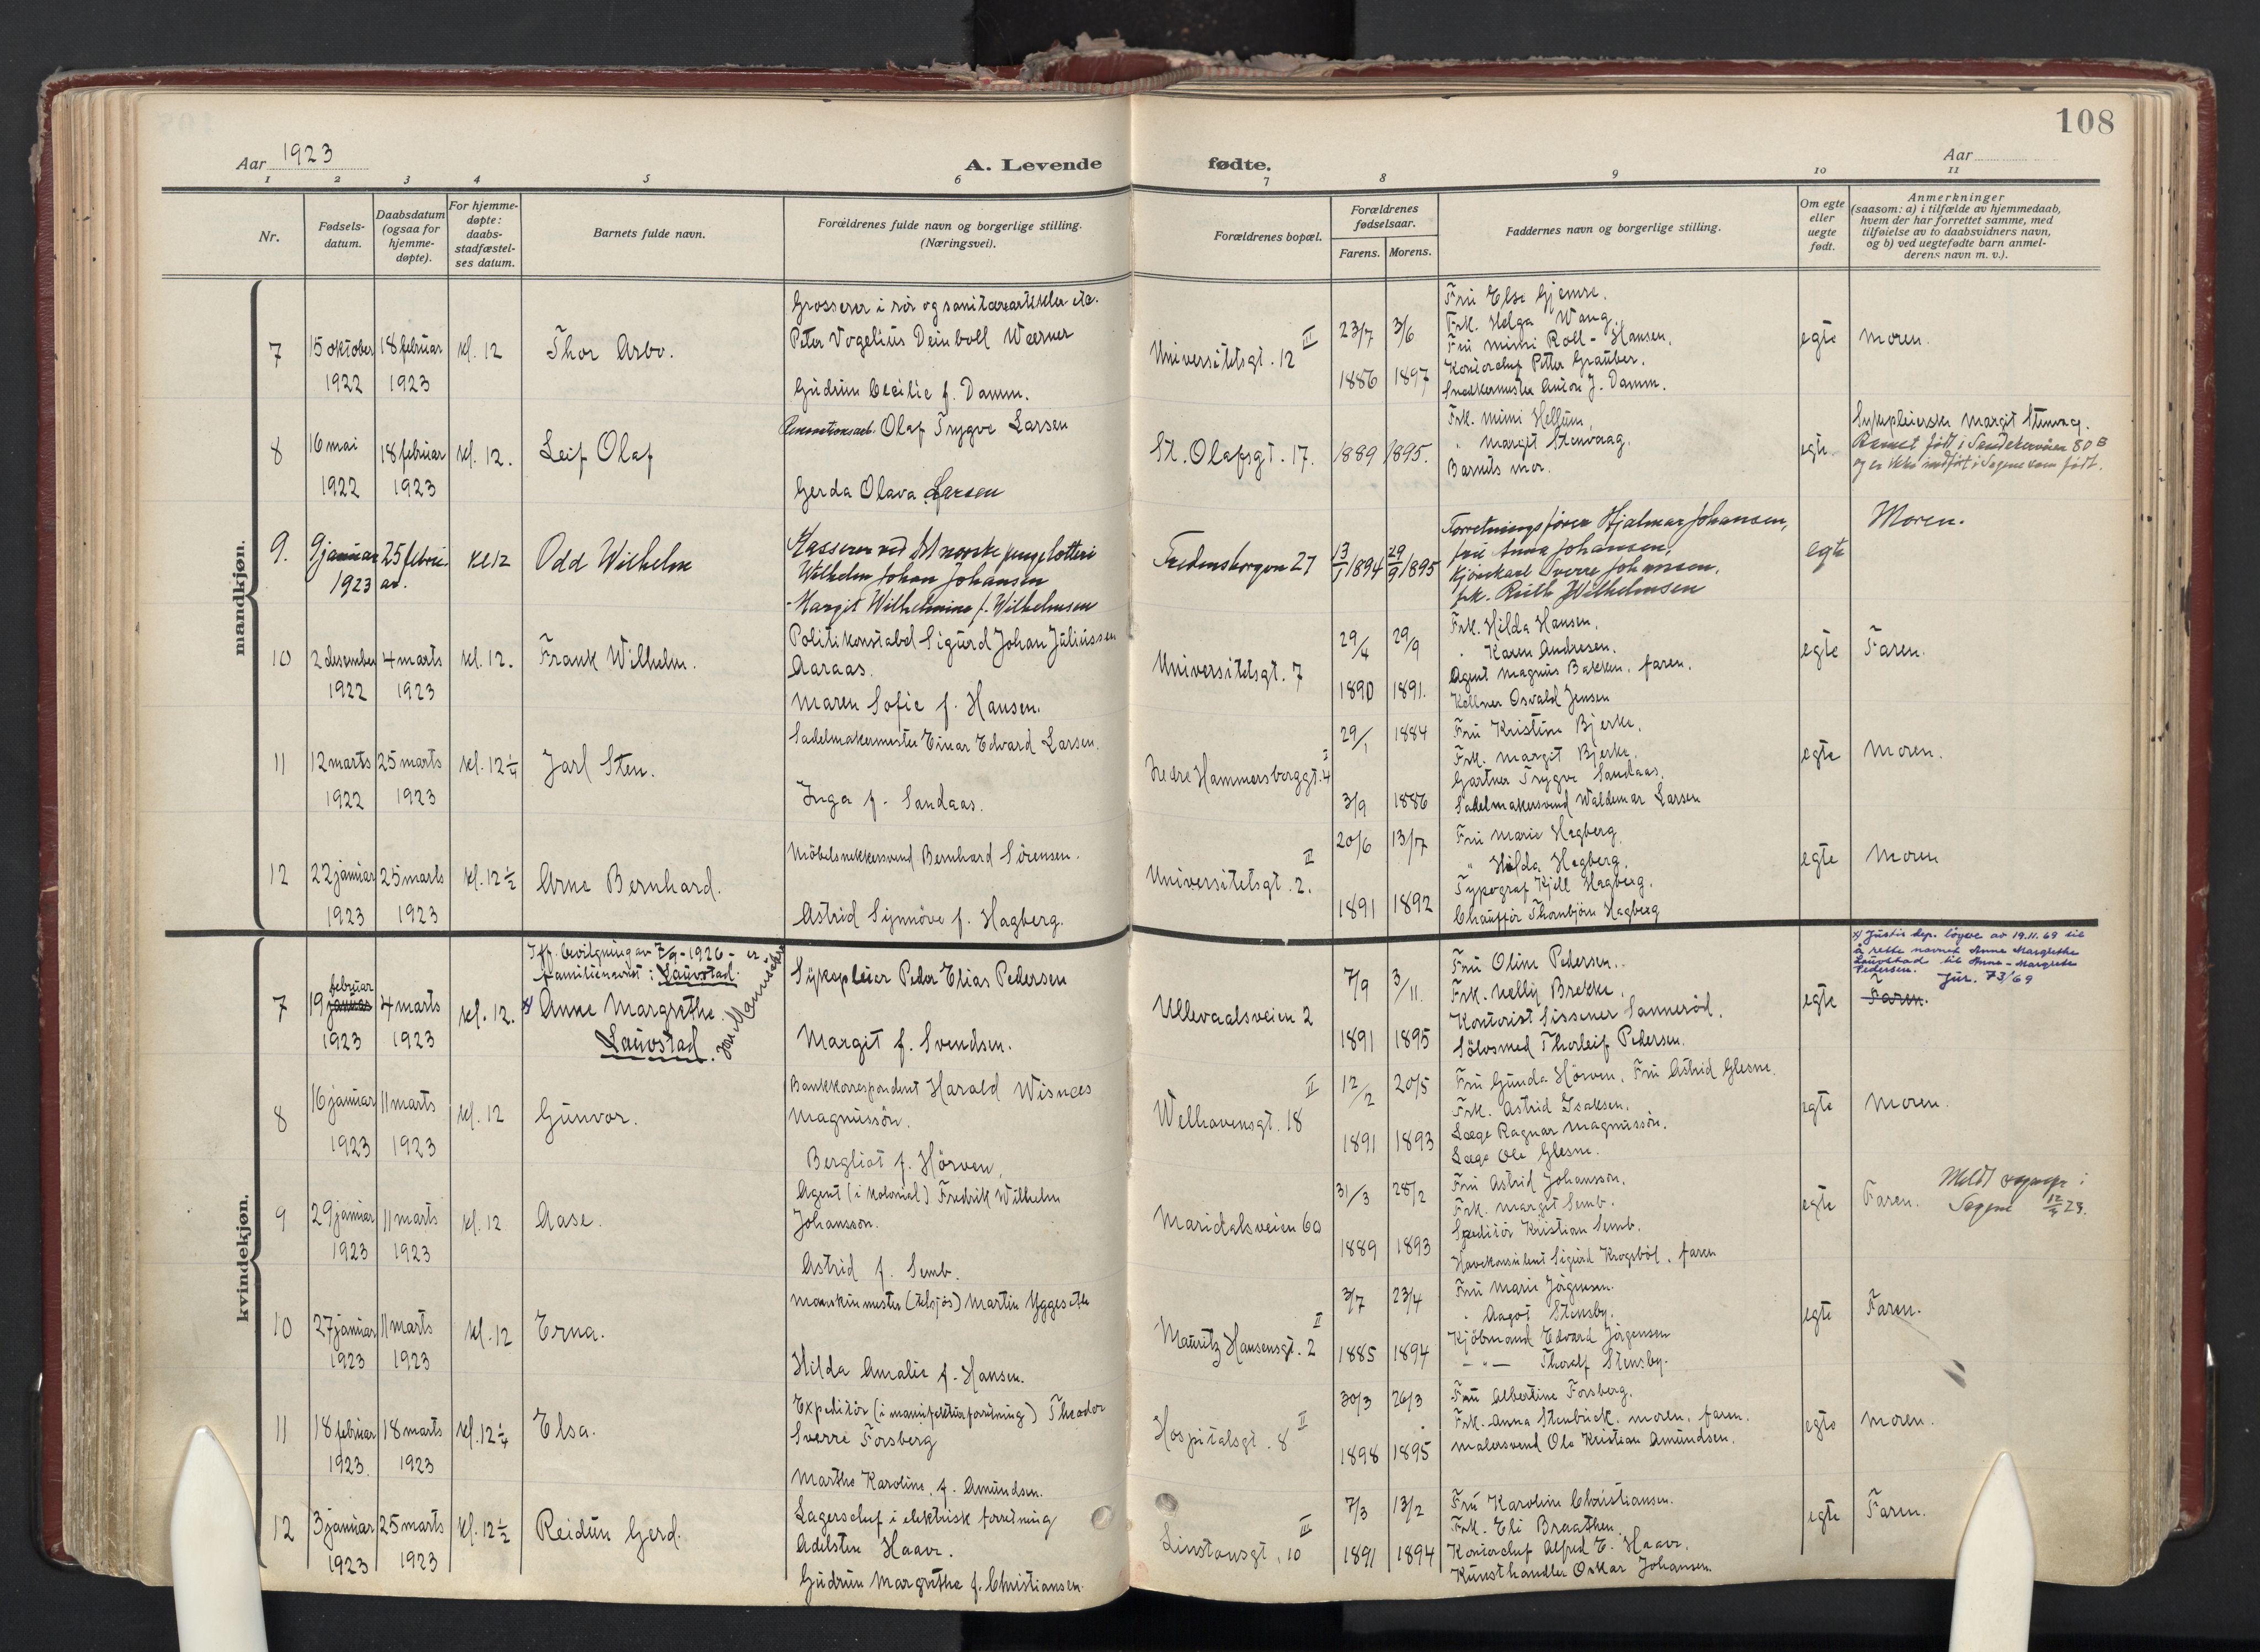 108
Aar 1923
A. Levende fødte.
Aar
1 2 3 4 5 6 7 8 9 10 11
Nr.
Fødsels-
datum.
Daabsdatum
(ogsaa for
hjemme-
døpte).
For hjemme-
døpte:
daabs-
stadfæstel-
ses datum.
Barnets fulde navn.
Forældrenes fulde navn og borgerlige stilling.
(Næringsvei).
Forældrenes bopæl.
Forældrenes
fødselsaar.
Farens. Morens.
Faddernes navn og borgerlige stilling.
Om egte
eller
uegte
født.
Anmerkninger
(saasom: a) i tilfælde av hjemmedaab,
hvem der har forrettet samme, med
tilføielse av to daabsvidners navn,
og b) ved uegtefødte barn anmel-
derens navn m. v.).
mandkjøn.
7
15 oktober
1922
18 februar
1923
kl. 12
Thor Arbo.
Grosserer i rör og sanitæreartikler etc.
Peter Vogelius Deinboll Wærner
Gudrun Cecilie f. Damm.
Universitetsgt. 12 III
23/7 3/6
1886 1897
Fru Else Gjemre.
Frk. Helga Wang.
Fru Mimi Roll-Hansen.
Kontorchef Petter Grauber.
Snedkermester Anton J. Damm.
egte
Moren.
8
16 mai
1922
18 februar
1923
kl. 12.
Leif Olaf
Olaf Trygve Larsen
Gerda Olava Larsen
St. Olafsgt. 17.
1889 1895.
Frk. Mimi Hellum,
" Margit Stenvaag.
Barnets mor.
egte.
Sykepleierske Margit Stenvag.
Barnet født i Sandakerveien 80 B
og er ikke indført i Sagene som født.
9.
9 januar
1923
25 febru-
ar.
Kl 12
Odd Wilhelm
Kasserer ved det norske pengelotteri
Wilhelm Johan Johansen
Margit Wilhelmine f. Wilhelmsen
Fredensborgvn 27
13/1 1894 29/9 1895
Forretningsfører Hjalmar Johansen,
fru Anna Johansen,
Kjørekarl Sverre Johansen,
frk. Ruth Wilhelmsen
egte
Moren.
10
2 desember
1922
4 marts
1923
kl. 12.
Frank Wilhelm.
Politikonstabel Sigurd Johan Juliussen
Aaraas.
Maren Sofie f. Hansen.
Universitetsgt. 7
29/4 29/9
1890 1891.
Frk. Hilda Hansen,
" Karen Andresen.
Agent Magnus Bakken. faren.
Kellner Osvald Jensen
egte
Faren.
11
12 marts
1922
25 marts
1923
kl. 12 1/4
Jarl Sten.
Sadelmakermester Einar Edvard Larsen.
Inga f. Sandaas.
Nedre Hammersborggt. 4 I
29/1 1884
3/9 1886
Fru Kristine Bjerke,
Frk. Margit Bjerke,
Gartner Trygve Sandaas,
Sadelmakersvend Waldemar Larsen
egte
Moren.
12
22 januar
1923
25 marts
1923
kl. 12 1/2
Arne Bernhard.
Möbelsnekkersvend Bernhard Sörensen.
Astrid Synnöve f. Hagberg.
Universitetsgt. 2. II
20/6 13/7
1891 1892
Fru Marie Hagberg,
" Hilda Hagberg,
Typograf Kjell Hagberg,
Chauffør Thornbjörn Hagberg
egte
Moren
kvindekjøn.
7
19 februar
januar
1923
4 marts
1923
kl. 12.
Ifl. bevilgning av 7/9-1926 - er
familienavnet: Lauvstad.
x) Anne Margrethe.
Lauvstad.
Sykepleier Peder Elias Pedersen
Margit f. Svendsen.
Ullevaalsveien 2
7/9 3/11.
1891 1895
Fru Oline Pedersen.
Frk. Nelly Brekke.
Kontorist Sissener Sannerød.
Sölvsmed Thorleif Pedersen.
egte
x) Justis dep. løyve av 19.11.69 til
å rette navnet Anne Margrethe
Lauvstad til Anne-Margrete
Pedersen. Jnr. 73/69
Faren.
8
16 januar
1923
11 marts
1923
kl. 12
Gunvor.
Bankkorrespondent Harald Wisnæs
Magnussön.
Bergliot f. Hörven,
Welhavensgt. 18 II
12/2 20/5
1891 1893
Fru Gunda Hörven, Fru Astrid Glesne.
Frk. Astrid Isaksen.
Læge Ragnar Magnussön.
Læge Ole Glesne.
egte
Moren.
9
29 januar
1923
11 marts
1923
kl. 12
Aase.
Agent (i kolonial) Fredrik Wilhelm
Johansson.
Astrid f. Semb.
Maridalsveien 60
31/3 28/2
1889 1893
Fru Astrid Johansson,
Frk. Margit Semb.
Speditör Kristian Semb.
Havekonsulent Sigurd Krogsböl. faren
egte
Faren.
Meldt ogsaa i
Sagene 12/4 23.
10
27 januar
1923
11 marts
1923
kl. 12
Erna.
Maskinmester (tilsjøs) Martin Yggeseth
Hilda Amalie f. Hansen.
Mauritz Hansensgt. 2 II
3/7 23/4
1885 1894
Fru Marie Jörgensen.
" Aagot Stensby.
Kjöbmand Edvard Jörgensen
— " — Thoralf Stensby.
egte
Faren.
11
18 februar
1923.
18 marts
1923
kl. 12 1/4
Elsa.
Expeditör (i manufakturforretning) Theodor
Sverre Forsberg
Marthe Karoline, f. Amundsen.
Hospitalsgt. 8 II
30/3 26/3
1898 1895
Fru Albertine Forsberg,
Frk. Anna Stenbrück. moren. faren.
Malersvend Ole Kristian Amundsen.
egte
Moren.
12
3 januar
1923
25 marts
1923
kl. 12 1/2
Reidun Gerd.
Lagerschef i elektrisk forretning
Adelsten Haavr.
Gudrun Margrethe f. Christiansen.
Linstowsgt. 10 III
7/3 13/2
1891 1894
Fru Karoline Christiansen.
Frk. Eli Braathen
Kontorchef Alfred E. Haavr.
Kunsthandler Oskar Johansen.
egte
Faren.